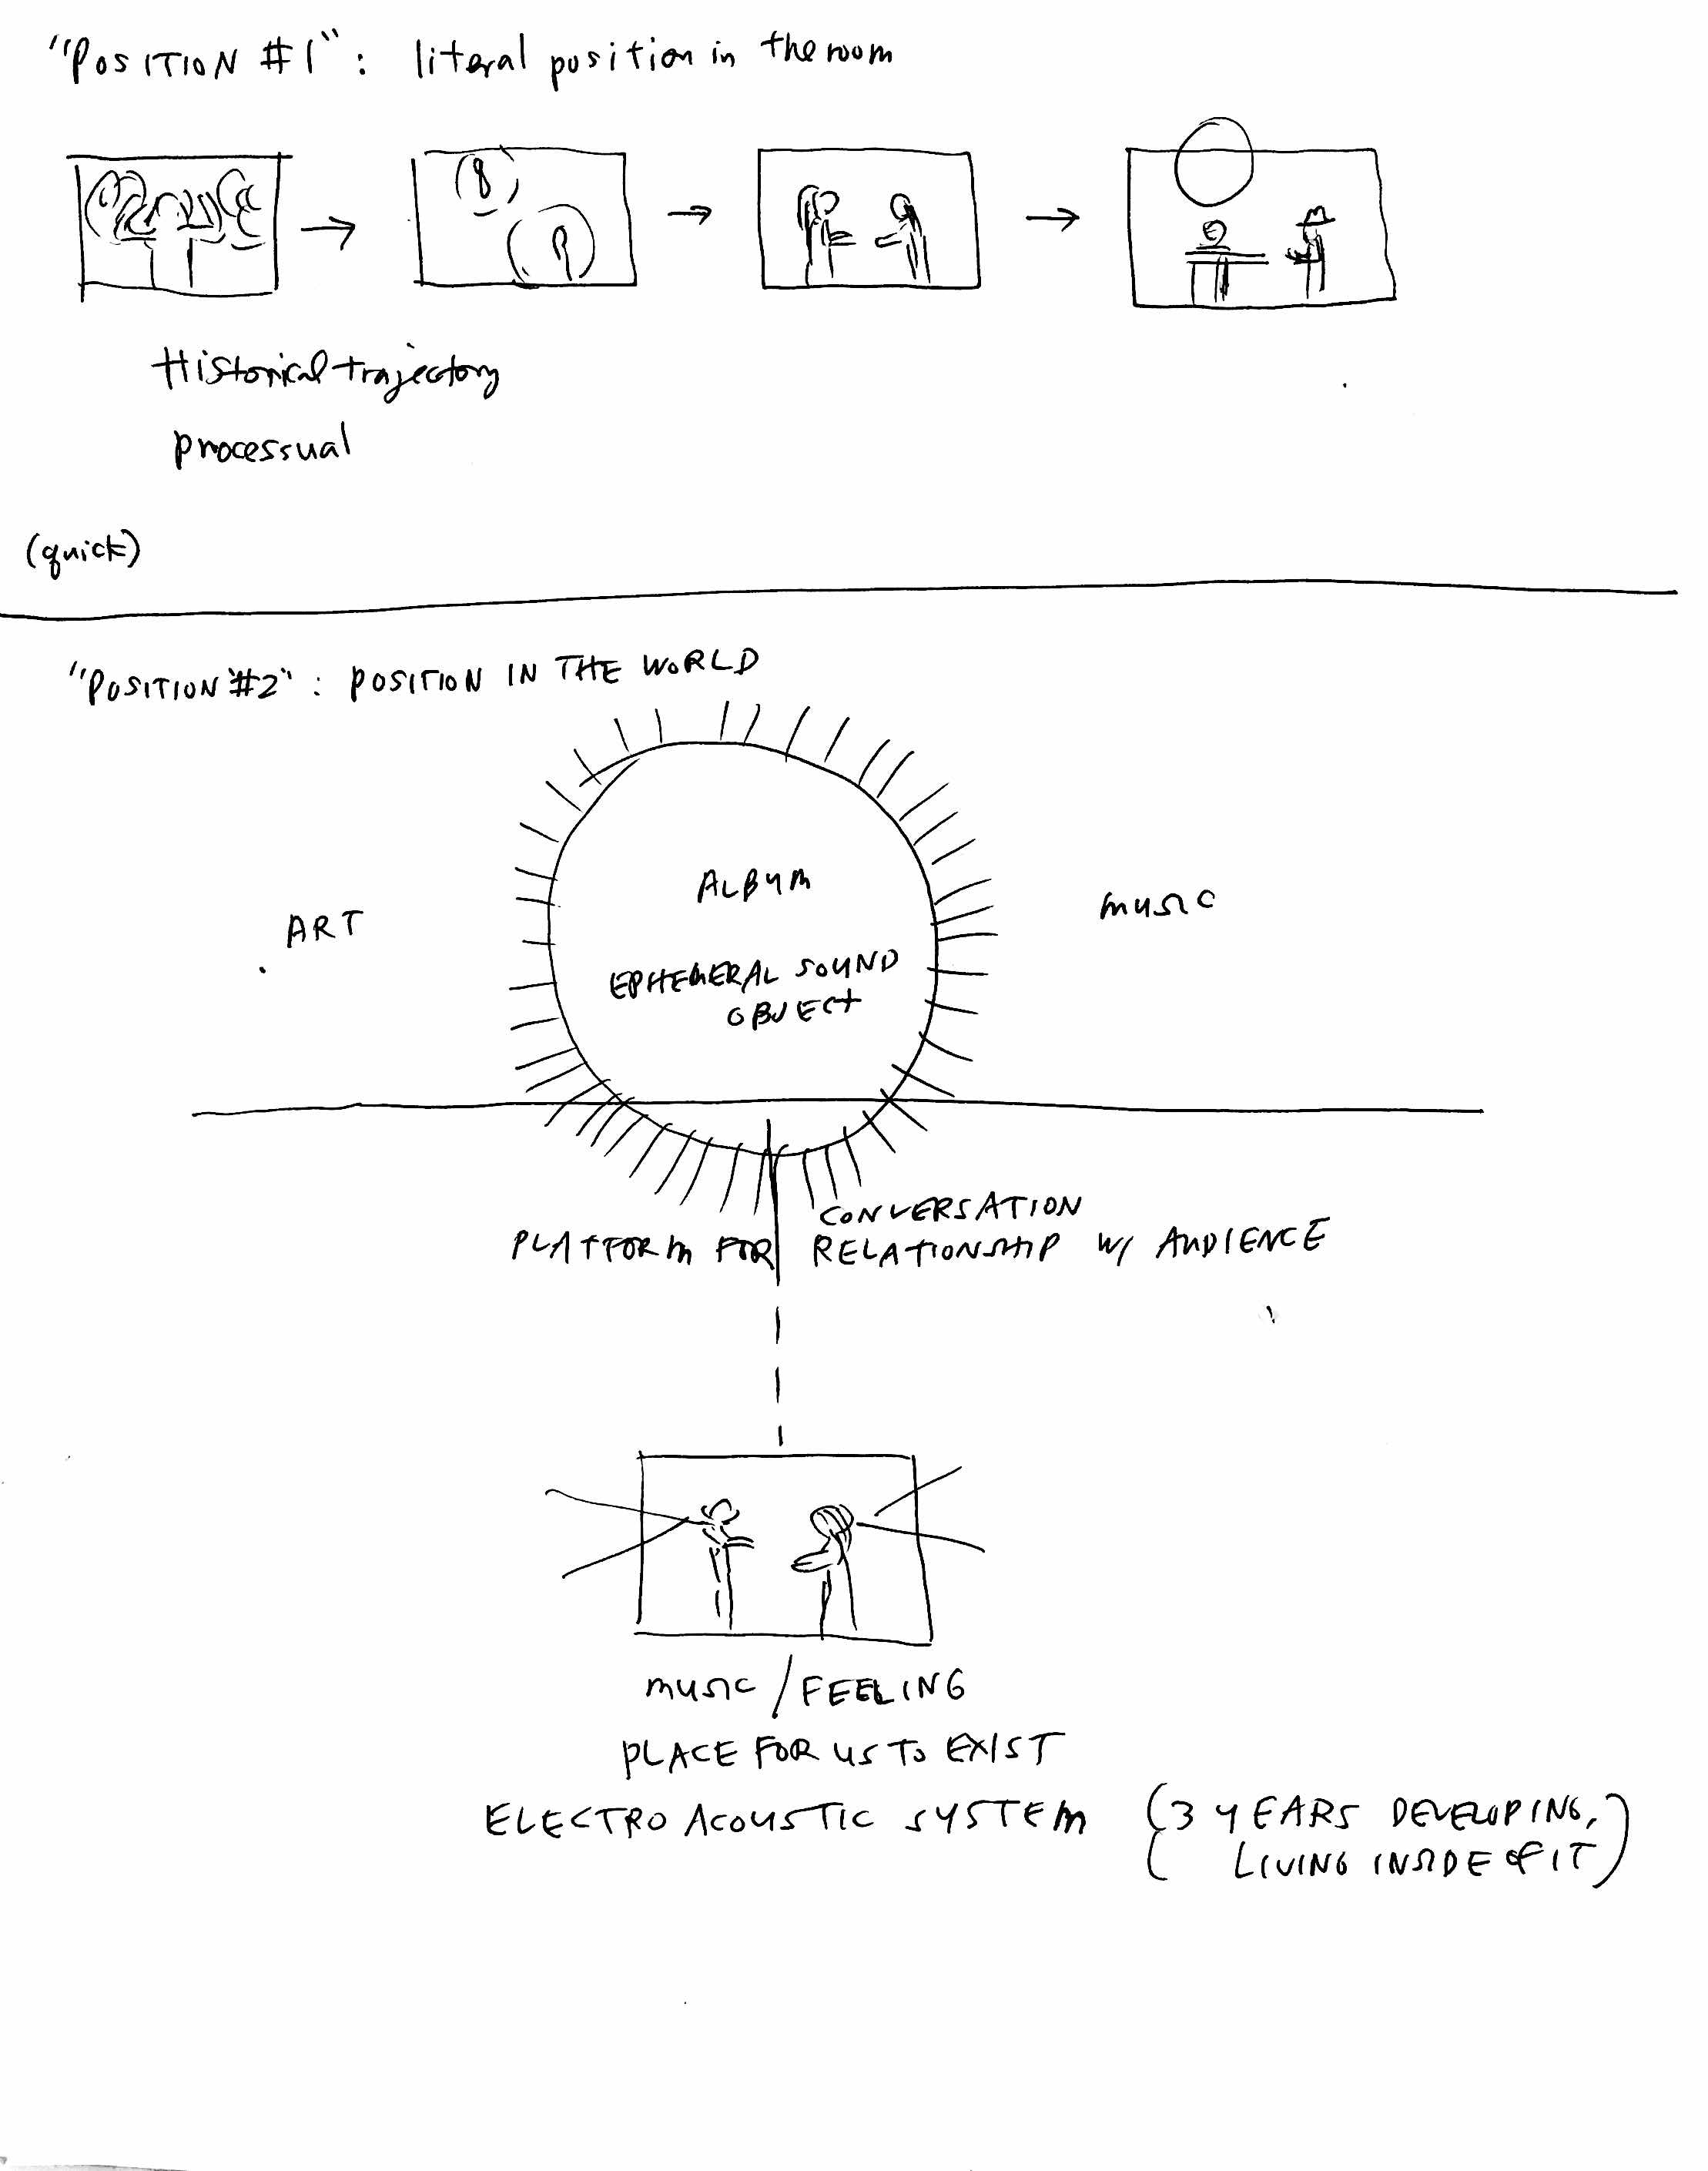 "POSITION #1": literal position in the room
Historical trajectory
processual
(quick)
"POSITION #2": POSITION IN THE WORLD
ALBUM
ART
MUSIC
EPHEMERAL SOUND
OBJECT
CONVERSATION
PLATFORM FOR RELATIONSHIP W/ AUDIENCE
MUSIC / FEELING
PLACE FOR US TO EXIST
ELECTRO ACOUSTIC SYSTEM (3 YEARS DEVELOPING,
LIVING INSIDE OF IT)